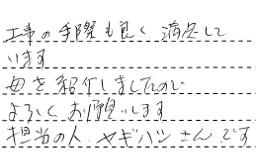 工事の手際も良く 満足して
います
母を紹介しましたので
よろしくお願いします
担当の人 ヤギハシさんです